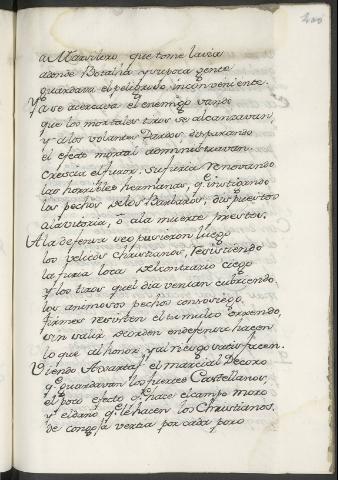 200
a Marvilexo, que tome la via
adonde Betalha y su poca gente
guardava el peligroso inconveniente.
Ya se acercava el enemigo vando
que los mortales tiros se alcanzavan,
y a los volantes Dardos disparando
el efecto mortal administravan.
Crescia el furor, su furia renovando
las horribles hermanas, q.e instigando
los pechos de los Barbaros, dispuestos
a la vitoria, ô a la muerte prestos.
A la defensa se pusieron luego
los velicos Christianos, resistiendo
la furia loca del contrario ciego
y los tiros que el dia venian cubriendo.
los animosos pechos con sosiego
firmes resisten el tumulto orrendo,
sin valir desorden en defensa hacen
lo que al honor, y al riesgo satisfacen.
Viendo Avarta el marcial Decoro
q.e guardavan los fuertes Castellanos,
el poco efecto q.e hace el campo moro
y el daño q.e le hacen los Christianos.
de congoja vertia por cada poro